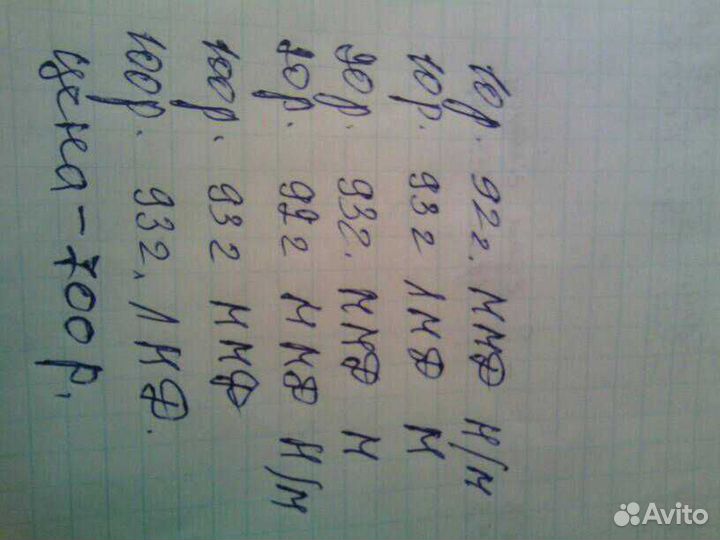 10р. 92г. ММД Н/М
10р. 93г ЛМД М
20р. 93г. ММД М
20р. 92г ММД Н/М
100р. 93г ММД
100р. 93г. ЛМД.
цена-700р.
Avito